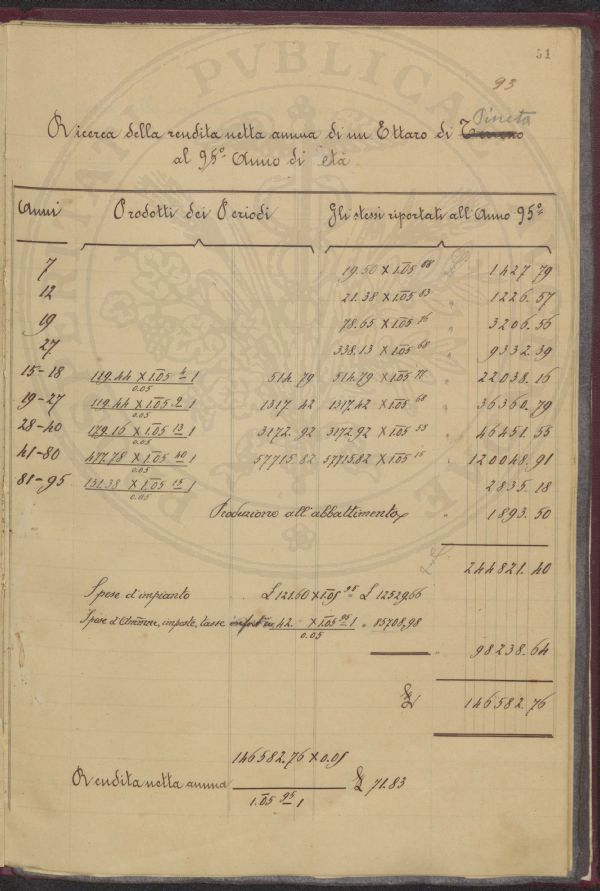 51
93
Pineta
Ricerca della rendita netta annua di un Ettaro di Terreno
al 95° Anno di età
Anni Prodotti dei Periodi Gli stessi riportati all'Anno 95°
7 19.50 X 1.05 88 1427 79
12 21.38 X 1.05 83 " 1226.57
19 78.65 X 1.05 76 " 3206.56
27 338.13 X 1.05 68 " 9332.39
15-18 119.44 X 1.05 4 1 / 0.05 514.79 514.79 X 1.05 77 " 22038.16
19-27 119.44 X 1.05 9 1 / 0.05 1317.42 1317.42 X 1.05 68 " 36360.79
28-40 179.16 X 1.05 13 1 / 0.05 3172.92 3172.92 X 1.05 55 " 46451.55
41-80 477.78 X 1.05 40 1 / 0.05 57715.82 57715.82 X 1.05 15 " 120048.91
81-95 131.38 X 1.05 15 1 / 0.05 " 2835.18
Produzione all'abbattimento " 1893.50
244821.40
Spese d'impianto £ 121.60 X 1.05 95 £ 12529,66
Spese d'Ammne, imposte, tasse 42. X 1.05 95 1 / 0.05 " 85708,98
" 98238.64
£ 146582.76
146582.76 X 0.05
Rendita netta annua £ 71.83
1.05 95 1
PVBLICA